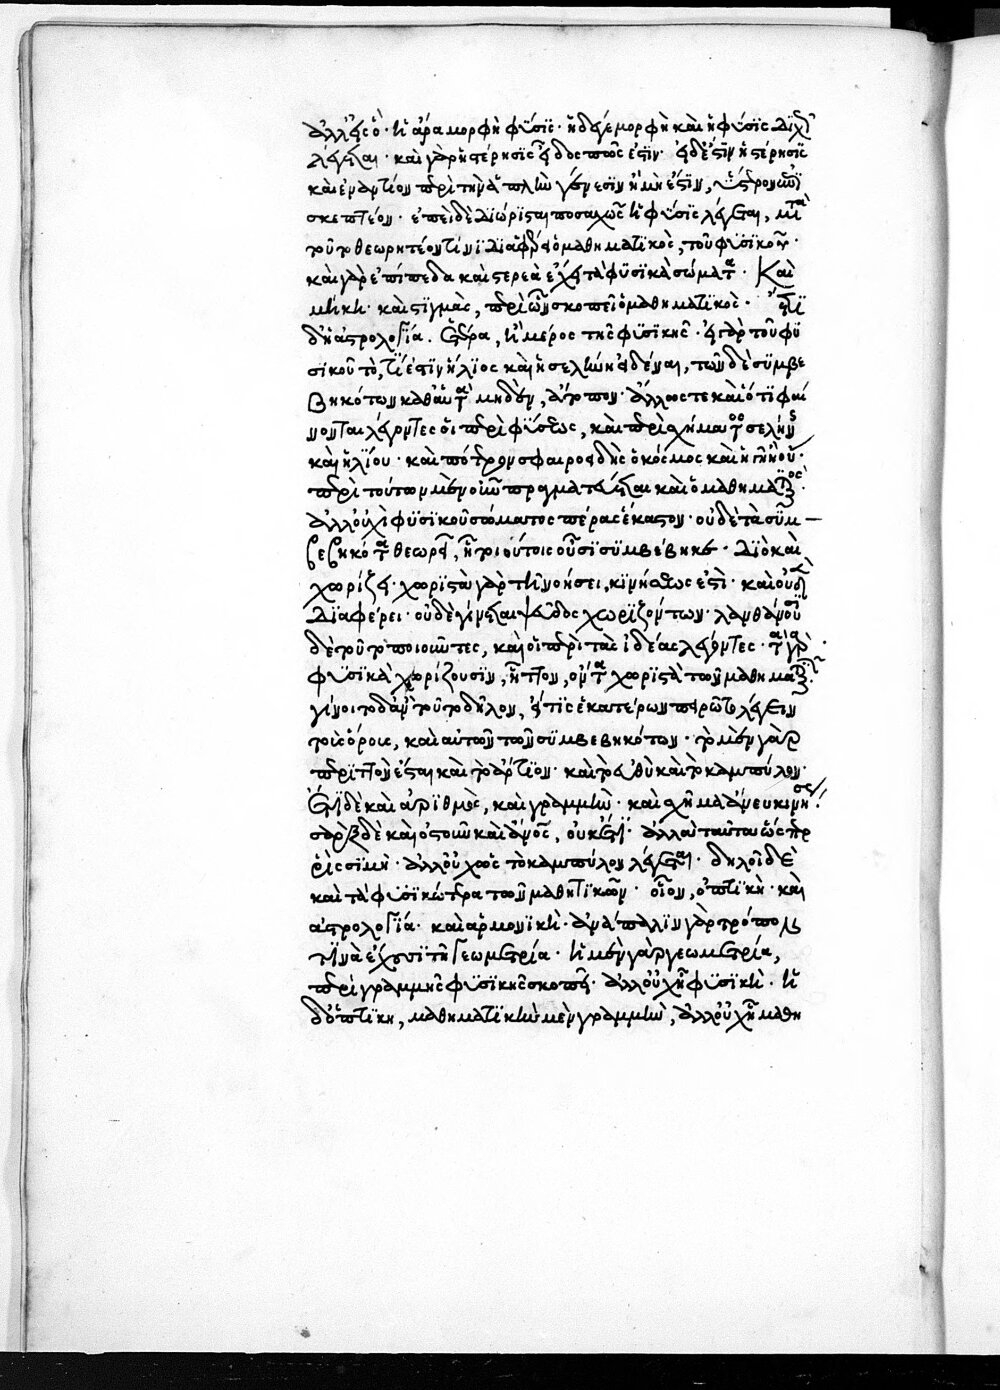 ἀλλ' εἰς ὅ· ἡ ἄρα μορφὴ φύσις· ἡ δέ γε μορφὴ καὶ ἡ φύσις διχῶς
λέγεται· καὶ γὰρ ἡ στέρησις εἶδος πως ἐστίν· εἰ δ' ἐστὶν ἡ στέρησις
καὶ ἐναντίον περὶ τὴν ἁπλὴν γένεσιν ἢ μὴ ἔστιν, ὕστερον
σκεπτέον· ἐπεὶ δὲ διώρισται ποσαχῶς ἡ φύσις λέγεται, μετὰ
τοῦτο θεωρητέον τίνι διαφέρει ὁ μαθηματικὸς, τοῦ φυσικοῦ·
καὶ γὰρ ἐπίπεδα καὶ στερεὰ ἔχει τὰ φυσικὰ σώματα· Καὶ
μήκη· καὶ στιγμὰς, περὶ ὧν σκοπεῖ ὁ μαθηματικὸς· ἔτι
δ' ἡ ἀστρολογία. ἑτέρα, ἢ μέρος τῆς φυσικῆς· εἰ γὰρ τοῦ φυ
σικοῦ τὸ, τί ἐστιν ἥλιος καὶ ἡ σελήνη εἰδέναι, τῶν δὲ συμβε
βηκότων καθ' αὑτὰ μηδὲν, ἄτοπον· ἄλλως τε καὶ ὅτι φαί
νονται λέγοντες οἱ περὶ φύσεως, καὶ περὶ σχήματος σελήνης
καὶ ἡλίου· καὶ πότερον σφαιροειδὴς ὁ κόσμος καὶ ἡ γῆ ἢ οὔ·
περὶ τούτων μὲν οὖν πραγματεύεται καὶ ὁ μαθηματικὸς·
ἀλλ' οὐχ ᾗ φυσικοῦ σώματος πέρας ἕκαστον· οὐδὲ τὰ συμ
βεβηκότα θεωρεῖ, ᾗ τοιούτοις οὖσι συμβέβηκε· διὸ καὶ
χωρίζει· χωριστὰ γὰρ τῇ νοήσει, κινήσεώς ἐστι· καὶ οὐδὲν
διαφέρει· οὐδὲ γίνεται ψεῦδος χωριζόντων· λανθάνουσι
δὲ τοῦτο ποιοῦντες, καὶ οἱ περὶ τὰς ἰδέας λέγοντες· τὰ γὰρ
φυσικὰ χωρίζουσιν, ἧττον, ὄντα χωριστὰ τῶν μαθηματικῶν·
γίνοιτο δ' ἂν τοῦτο δῆλον, εἴ τις ἑκατέρων πειρῷτο λέγειν
τοὺς ὅρους, καὶ αὐτῶν τῶν συμβεβηκότων· τὸ μὲν γὰρ
περιττὸν ἔσται καὶ τὸ ἄρτιον· καὶ τὸ εὐθὺ καὶ τὸ καμπύλον·
ἔτι δὲ καὶ ἀριθμὸς, καὶ γραμμὴ· καὶ σχῆμα ἄνευ κινήσεως·
σὰρξ δὲ καὶ ὀστοῦν καὶ ἄνθρωπος, οὐκέτι· ἀλλὰ ταῦτα ὥσπερ
ῥὶς σιμὴ· ἀλλ' οὐχ ὡς τὸ καμπύλον λέγεται· δηλοῖ δὲ
καὶ τὰ φυσικώτερα τῶν μαθητικῶν· οἷον, ὀπτικὴ· καὶ
ἀστρολογία· καὶ ἁρμονικὴ· ἀνάπαλιν γὰρ τρόπον
τινὰ ἔχουσι τῇ γεωμετρίᾳ· ἡ μὲν γὰρ γεωμετρία,
περὶ γραμμῆς φυσικῆς σκοπεῖ· ἀλλ' οὐχ ᾗ φυσικὴ· ἡ
δ' ὀπτικὴ, μαθηματικὴν μὲν γραμμὴν, ἀλλ' οὐχ ᾗ μαθη